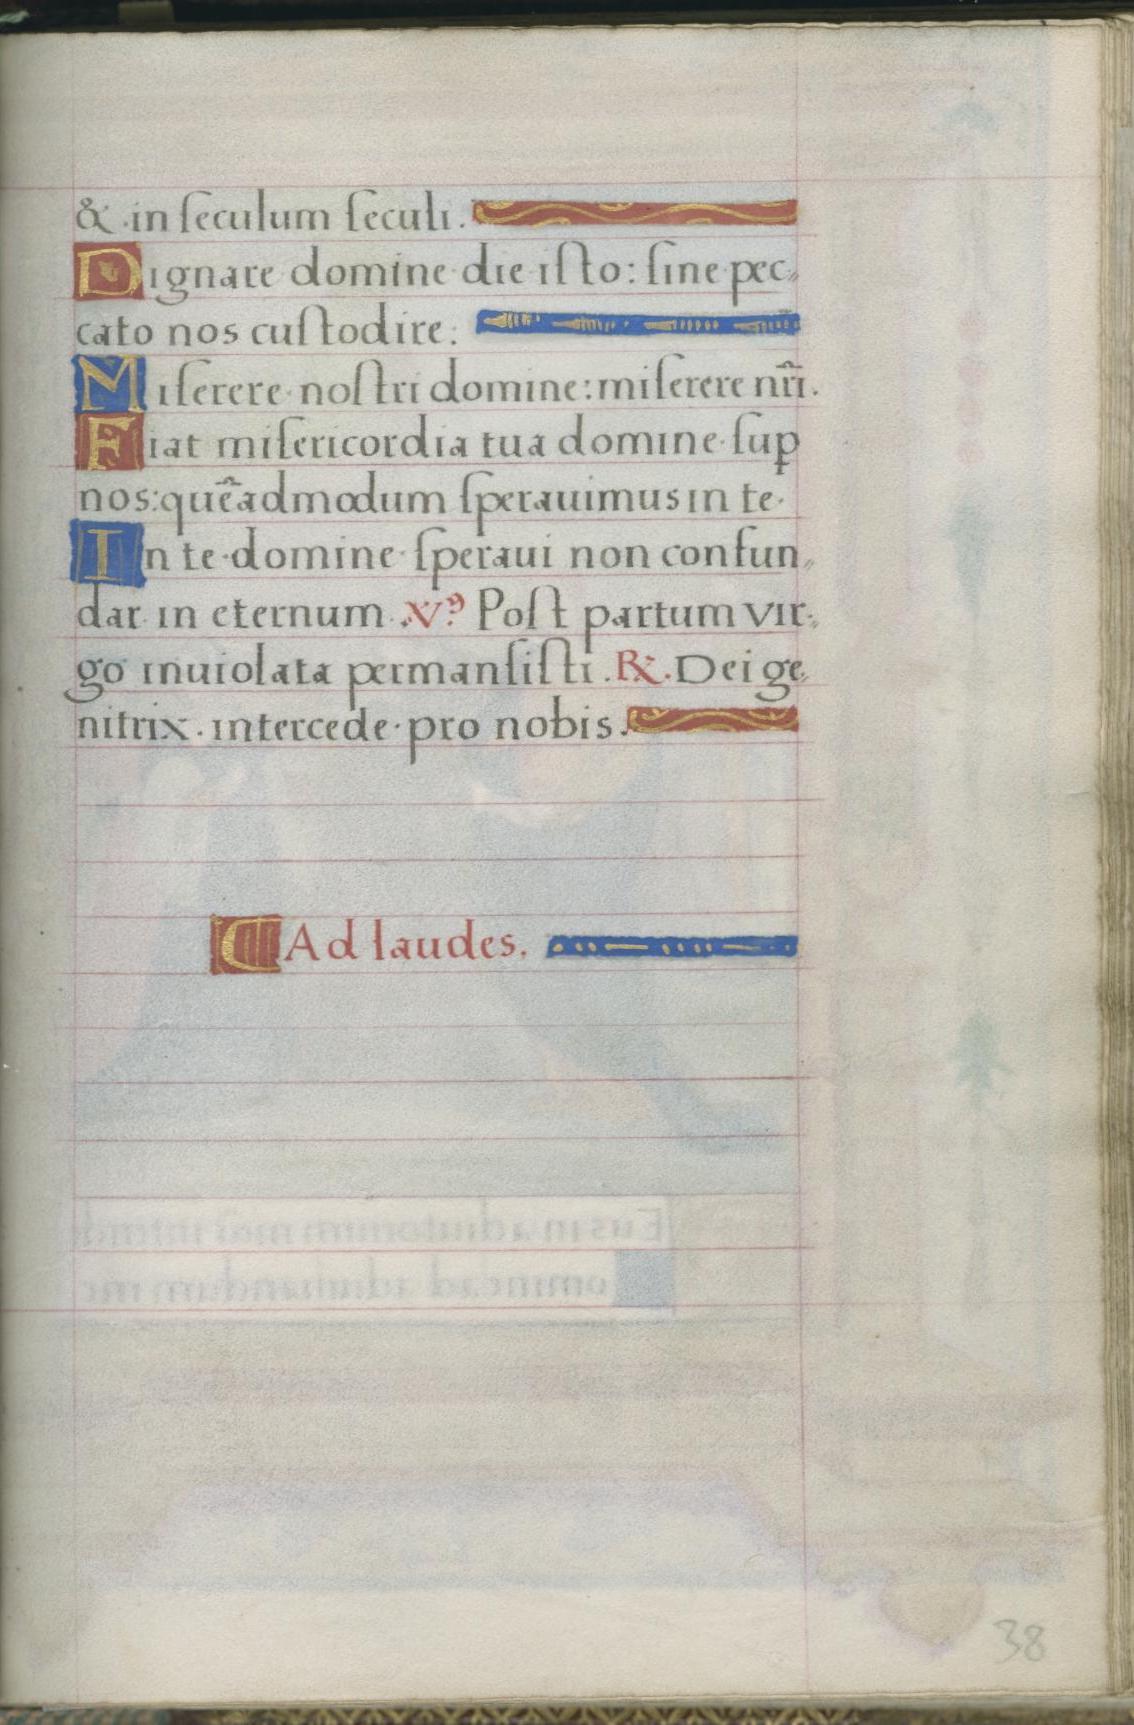 & in ſeculum ſeculi.
Dignare domine die iſto: ſine pec„
cato nos cuſtodire:
Miſerere noſtri domine: miſerere nr̃i.
Fiat miſericordia tua domine ſuꝑ
nos: quẽadmodum ſperauimus in te.
In te domine ſperaui non confun„
dar in eternum. V⁹. Poſt partum vir„
go inuiolata permanſiſti. ℞. Dei ge„
nitrix. intercede pro nobis.
Ad laudes.
38